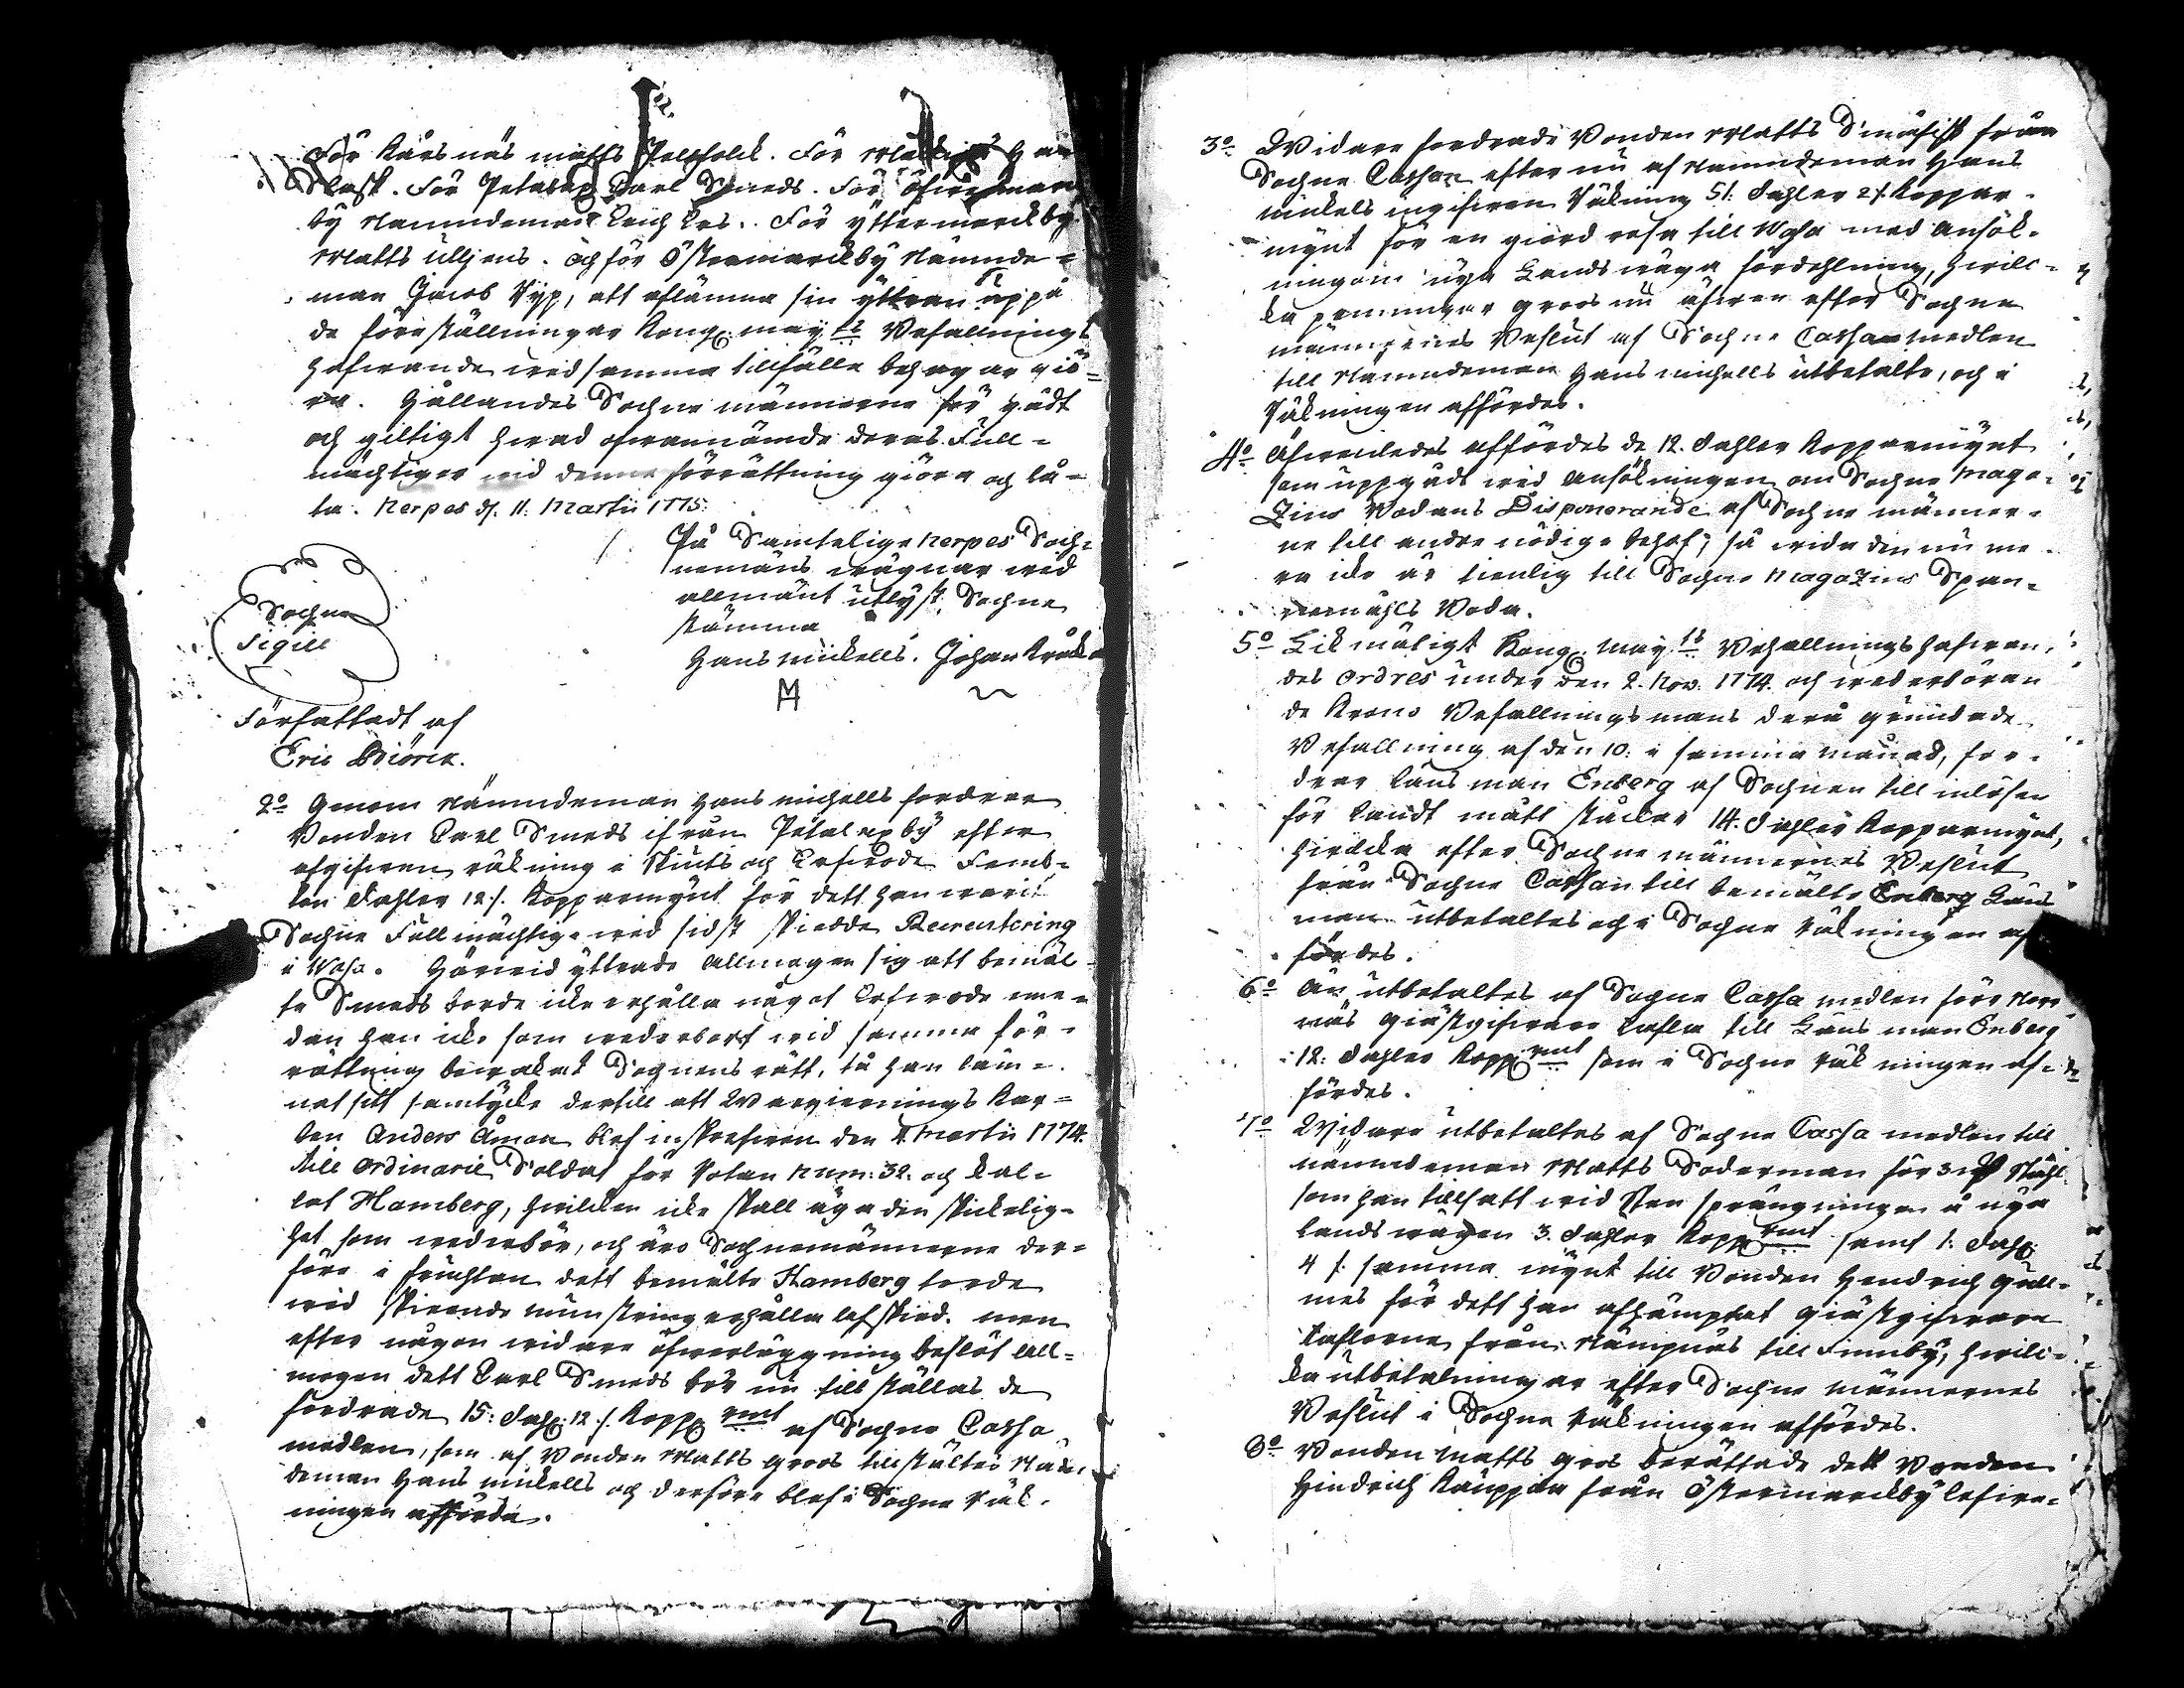 För Kårsnäs Matts Pellfolck. För
Slask. För Petalax Carl Smeds. För öfwermarck
by Nämndeman Erich Ers. För yttermarckby
Matts Uljens. och för Östermarckby Nämnde=
man Jacob Syp, att aflämna sin yttran uppå
de föreställningar Kongl. May:ts Befallnings
hafwande wid samma tillfälle behagar giö=
ra. Hållandes Sockne männerne för gådt
och giltigt hwad ofwannämde deras Full=
mächtiger wid denna förrättning giöra och lå=
ta. Nerpes d. 11. Martii 1775.
På Samtelige Nerpes Sock=
nemäns wägnar wid
allmänt utlyst Sockne
stämma
Hans Mickells. Johan Kråk
Sockne
Sigill
Författadt af
Eric Biörck.
2o Genom Nämndeman Hans Michells fordrar
Bonden Carl Smeds ifrån Petalax by efter
afgifwen räkning i Skiuts och Arfwode Femb=
ton Dahler 12 s. Koppar mynt för dett han warit
Sockne Fullmächtig wid sidst skiedde Recreutering
i Wasa. Härwid yttrade Allmogen sig att bemäl=
te Smeds borde icke erhålla något Arfwode me=
dan han icke som wederbort wid samma för=
rättning bewakat Socknens rätt, då han läm=
nat sitt samtycke dertill att Warfwernings Kar=
len Anders Åman blef inskrefwen den 4 Martii 1774.
till ordinarie Soldat för Rotan Num: 32. och kal=
lat Hamberg, hwilcken icke skall äga den skickelig=
het som wederbör, och äro Socknemännerne der=
före i fruchtan dett bemälte Hamberg torde
wid skieende munstring erhålla afskied. men
efter någon widare öfwerläggning beslöt All=
mogen dett Carl Smeds bör nu tillställas de
fordrade 15: Dahl: 12 s. Kopp:mt af Sockne Cassa
medlen, som af Bonden Matts Groos tillstältes Näm
deman Hans Mickells och derföre blef i Sockne Räk=
ningen afförda.
3o Widare fordrade Bonden Matts Småfisk från
Sockne Cassan efter nu af Nämndeman Hans
Mickels ingifwen Räkning 51. Dahler 24. Koppar=
mynt för en giord resa till Wasa med Ansök=
ning om nya Landswäga fördehlning, hwilc=
ka penningar Groos nu äfwen efter Sockne
männernes Beslut af Sockne Cassa medlen
till Nämndeman Hans Michells utbetalte, och i
Räkningen affördes.
4o Äfwenledes affördes de 12. Dahler Kopparmynt
som uppgådt wid Ansökningen om Sockne Maga=
Zins Bodans Disponerande af Sockne männer=
ne till andre nödige behof, så wida den nu me=
ra icke är tienlig till Sockne MagaZins Span=
nemåhls Boda.
5o Likmätigt Kong. May:ts Befallningshafwan=
des Ordres under den 2. Nov. 1774. och wederböran
de Krono Befallningsmans derå grundade
Befallning af den 10. i samma månad, for=
drar Länsman Enberg af Socknen till inlösen
för bandt mått stäckar 14. Dahler Kopparmynt,
hwilcka efter Sockne männernes Beslut
från Sockne Cassan till bemälte Enberg Läns
man utbetaltes och i Sockne Räkningen af
fördes.
6o Än utbetaltes af Sogne Cassa medlen före
näs Giästgifware Tafla till Länsman Enberg
12. Dahler Kopp:mt som i Sockne Räkningen af=
fördes.
7o Widare utbetaltes af Sockne Cassa medlen till
Nämndeman Matts Söderman för 3 ℔ Stähl
som han tillsatt wid Sten sprängningen å nya
Landswägen 3. Dahler Kopp:mt samt 1. Dahl:
4 s. samma mynt till Bonden Hendrich Gull=
mes för dett han afhämptat Giästgifware
Taflorna från Nämpnäs till Finnby, hwilc=
ka utbetalningar efter Sockne männernes
Beslut i Sockne Räkningen affördes.
8o Bonden Matts Gros berättade dett Bonden
Hindrich Kauppas från Östermarckby lefwe=